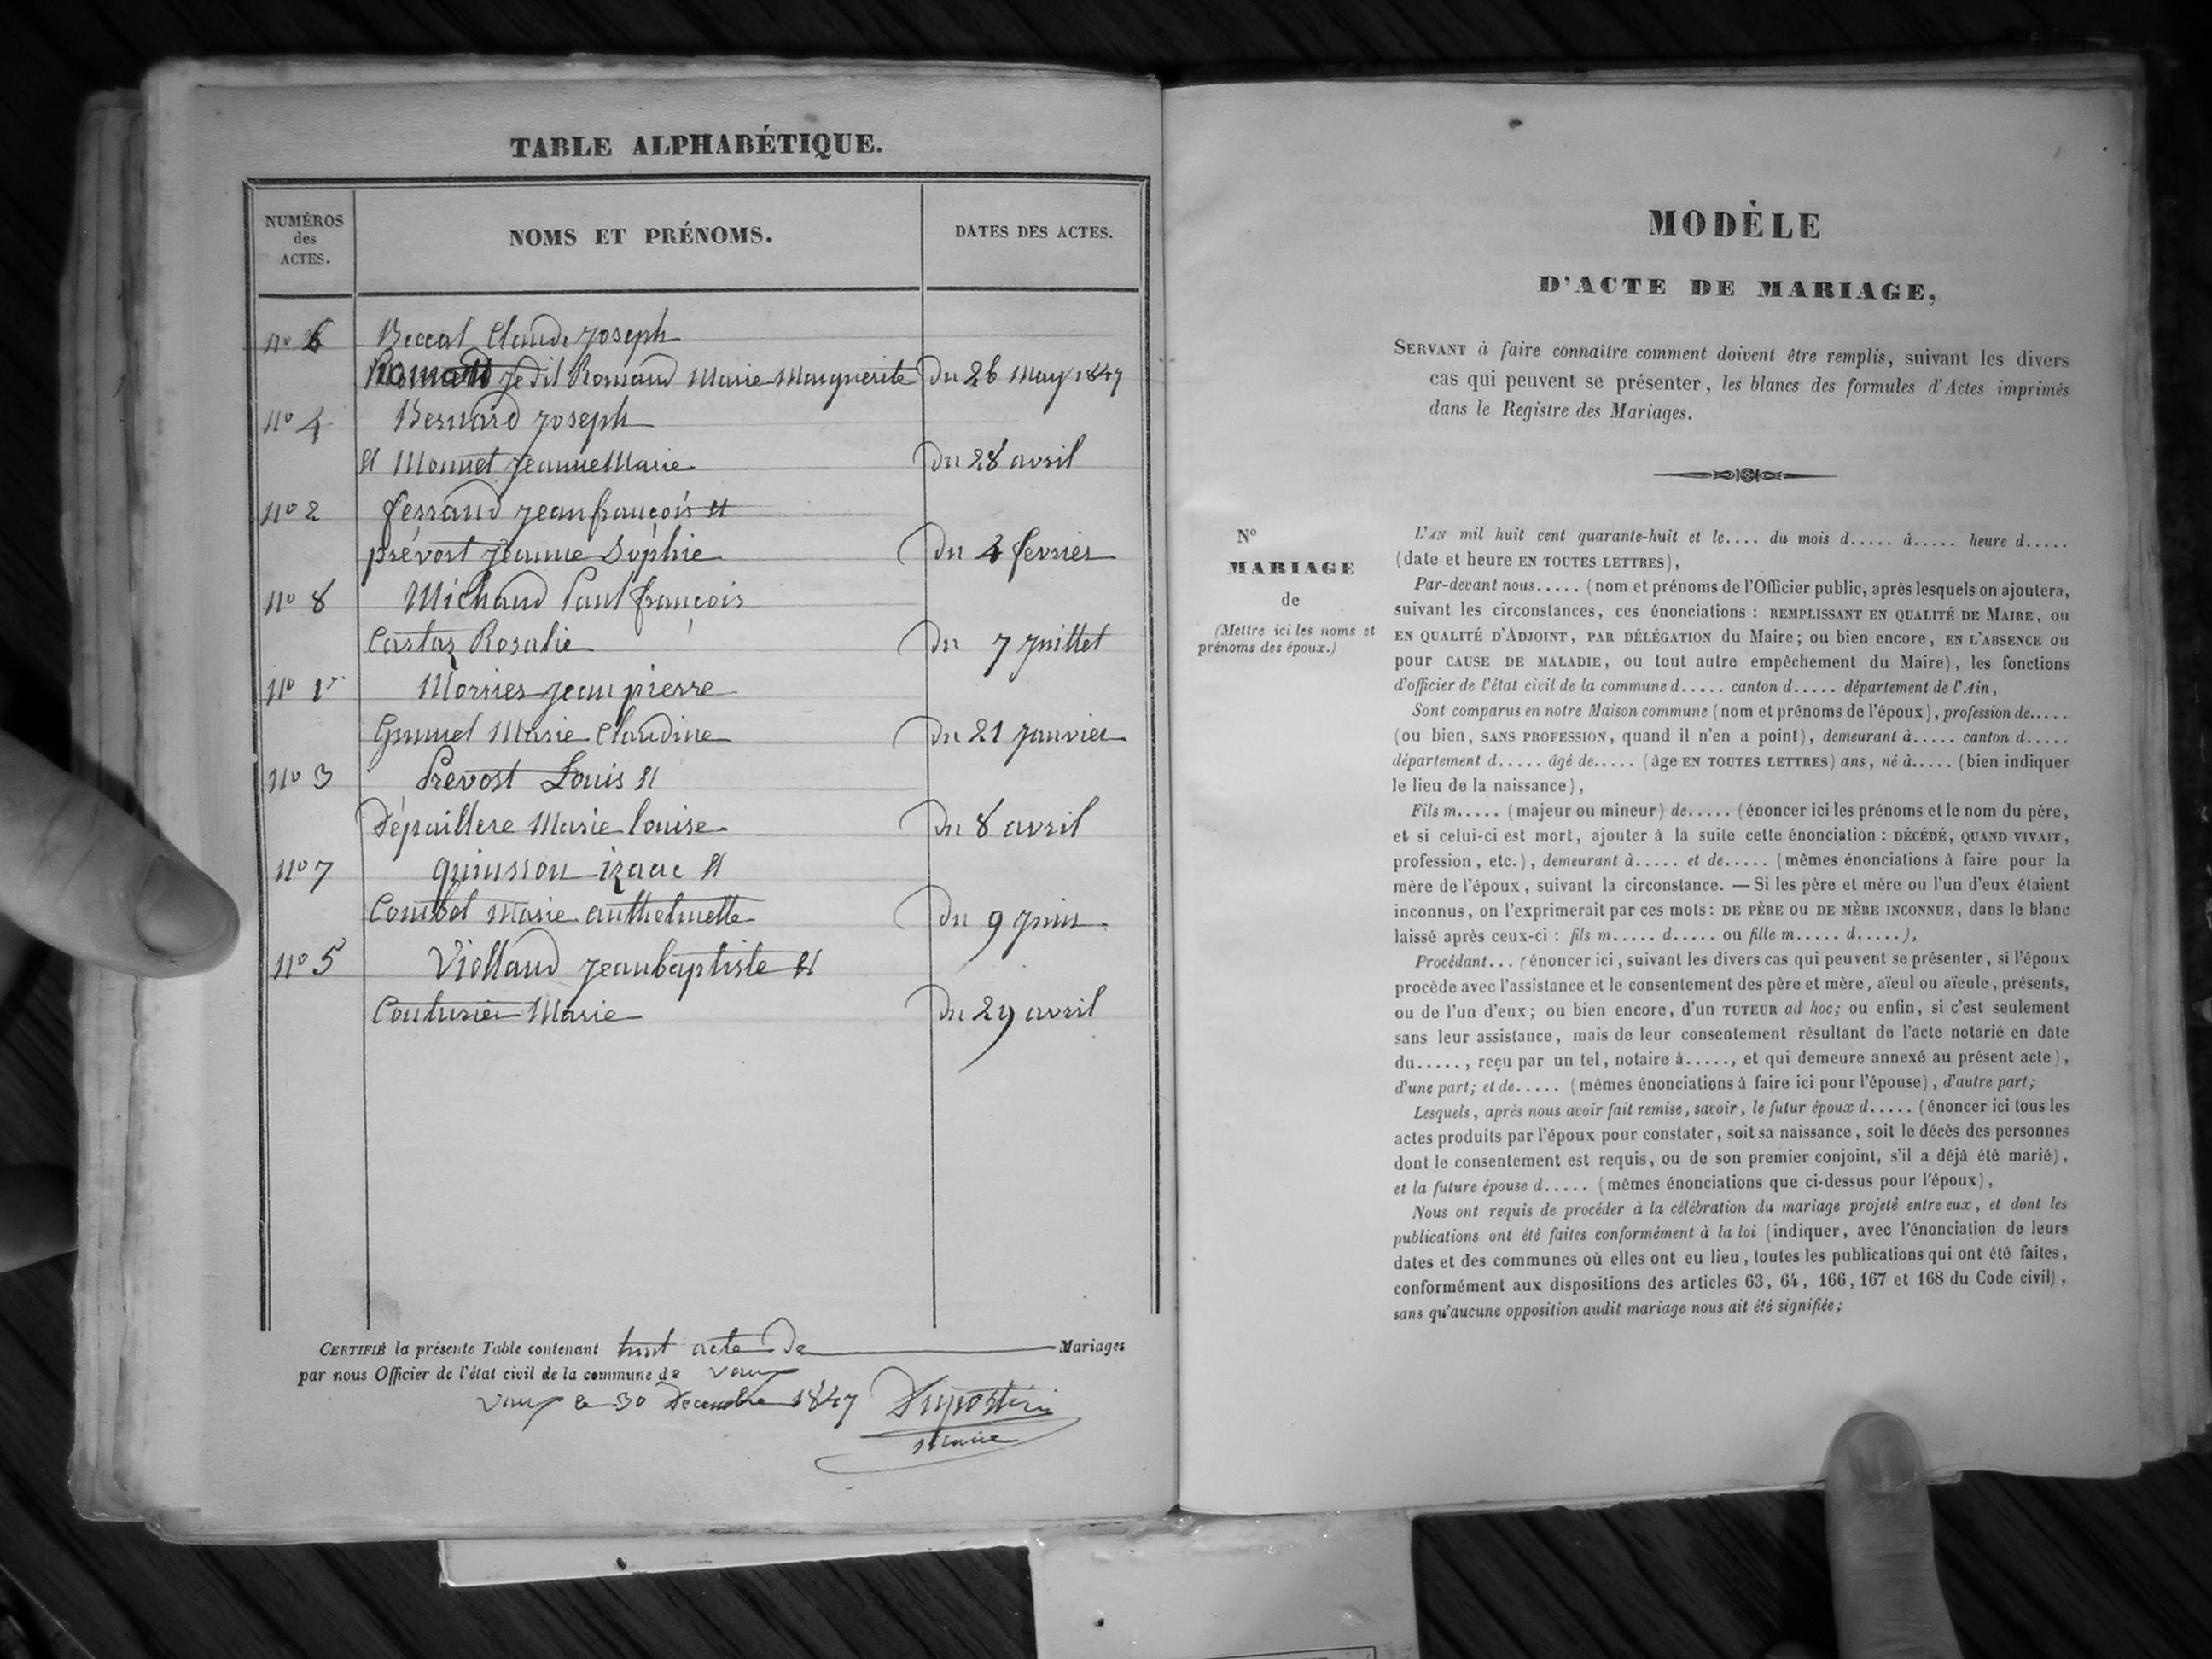 TABLE ALPHABÉTIQUE.
NUMÉROS
des
ACTES.
NOMS ET PRÉNOMS.
DATES DES ACTES.
No 6 Beccat Claude Joseph
dit Romand Marie Marguerite Du 26 May 1847
No 4 Bernard Joseph
et Monnet Jeanne Marie Du 28 avril
No 2 ferrand Jean françois et
prévost Jeanne Sophie Du 4 fevrier
No 8 Michaud Paul françois
Castaz Rosalie Du 7 Juillet
No 1er Mornier Jean pierre
Marie Claudine Du 21 Janvier
No 3 Prevost Louis et
Marie Louise Du 8 avril
No 7 quinsson izaac et
Combet Marie anthelmette Du 9 Juin
No 5 Viollaud Jean baptiste et
Couturier Marie Du 29 avril
CERTIFIÉ la présente Table contenant huit acte De Mariages
par nous Officier de l'état civil de la commune de Vaux
Vaux le 30 Decembre 1847
Maire
MODÈLE
D'ACTE DE MARIAGE,
SERVANT à faire connaître comment doivent être remplis, suivant les divers
cas qui peuvent se présenter, les blancs des formules d'Actes imprimés
dans le Registre des Mariages.
No
MARIAGE
de
(Mettre ici les noms et
prénoms des époux.)
L'AN mil huit cent quarante-huit et le.... du mois d..... à..... heure d.....
(date et heure EN TOUTES LETTRES),
Par-devant nous..... (nom et prénoms de l'Officier public, après lesquels on ajoutera,
suivant les circonstances, ces énonciations : REMPLISSANT EN QUALITÉ DE MAIRE, ou
EN QUALITÉ D'ADJOINT, PAR DÉLÉGATION du Maire; ou bien encore, EN L'ABSENCE ou
pour CAUSE DE MALADIE, ou tout autre empêchement du Maire), les fonctions
d'officier de l'état civil de la commune d..... canton d..... département de l'Ain,
Sont comparus en notre Maison commune (nom et prénoms de l'époux), profession de.....
(ou bien, SANS PROFESSION, quand il n'en a point), demeurant à..... canton d.....
département d..... âgé de..... (âge EN TOUTES LETTRES) ans, né à..... (bien indiquer
le lieu de la naissance),
Fils m..... (majeur ou mineur) de..... (énoncer ici les prénoms et le nom du père,
et si celui-ci est mort, ajouter à la suite cette énonciation : DÉCÉDÉ, QUAND VIVAIT,
profession, etc.), demeurant à..... et de..... (mêmes énonciations à faire pour la
mère de l'époux, suivant la circonstance. — Si les père et mère ou l'un d'eux étaient
inconnus, on l'exprimerait par ces mots: DE PÈRE ou DE MÈRE INCONNUE, dans le blanc
laissé après ceux-ci : fils m..... d..... ou fille m..... d.....),
Procédant... (énoncer ici, suivant les divers cas qui peuvent se présenter, si l'époux
procède avec l'assistance et le consentement des père et mère, aïeul ou aïeule, présents,
ou de l'un d'eux; ou bien encore, d'un TUTEUR ad hoc; ou enfin, si c'est seulement
sans leur assistance, mais de leur consentement résultant de l'acte notarié en date
du....., reçu par un tel, notaire à....., et qui demeure annexé au présent acte),
d'une part; et de..... (mêmes énonciations à faire ici pour l'épouse), d'autre part;
Lesquels, après nous avoir fait remise, savoir, le futur époux d..... (énoncer ici tous les
actes produits par l'époux pour constater, soit sa naissance, soit le décès des personnes
dont le consentement est requis, ou de son premier conjoint, s'il a déjà été marié),
et la future épouse d..... (mêmes énonciations que ci-dessus pour l'époux),
Nous ont requis de procéder à la célébration du mariage projeté entre eux, et dont les
publications ont été faites conformément à la loi (indiquer, avec l'énonciation de leurs
dates et des communes où elles ont eu lieu, toutes les publications qui ont été faites,
conformément aux dispositions des articles 63, 64, 166, 167 et 168 du Code civil),
sans qu'aucune opposition audit mariage nous ait été signifiée;